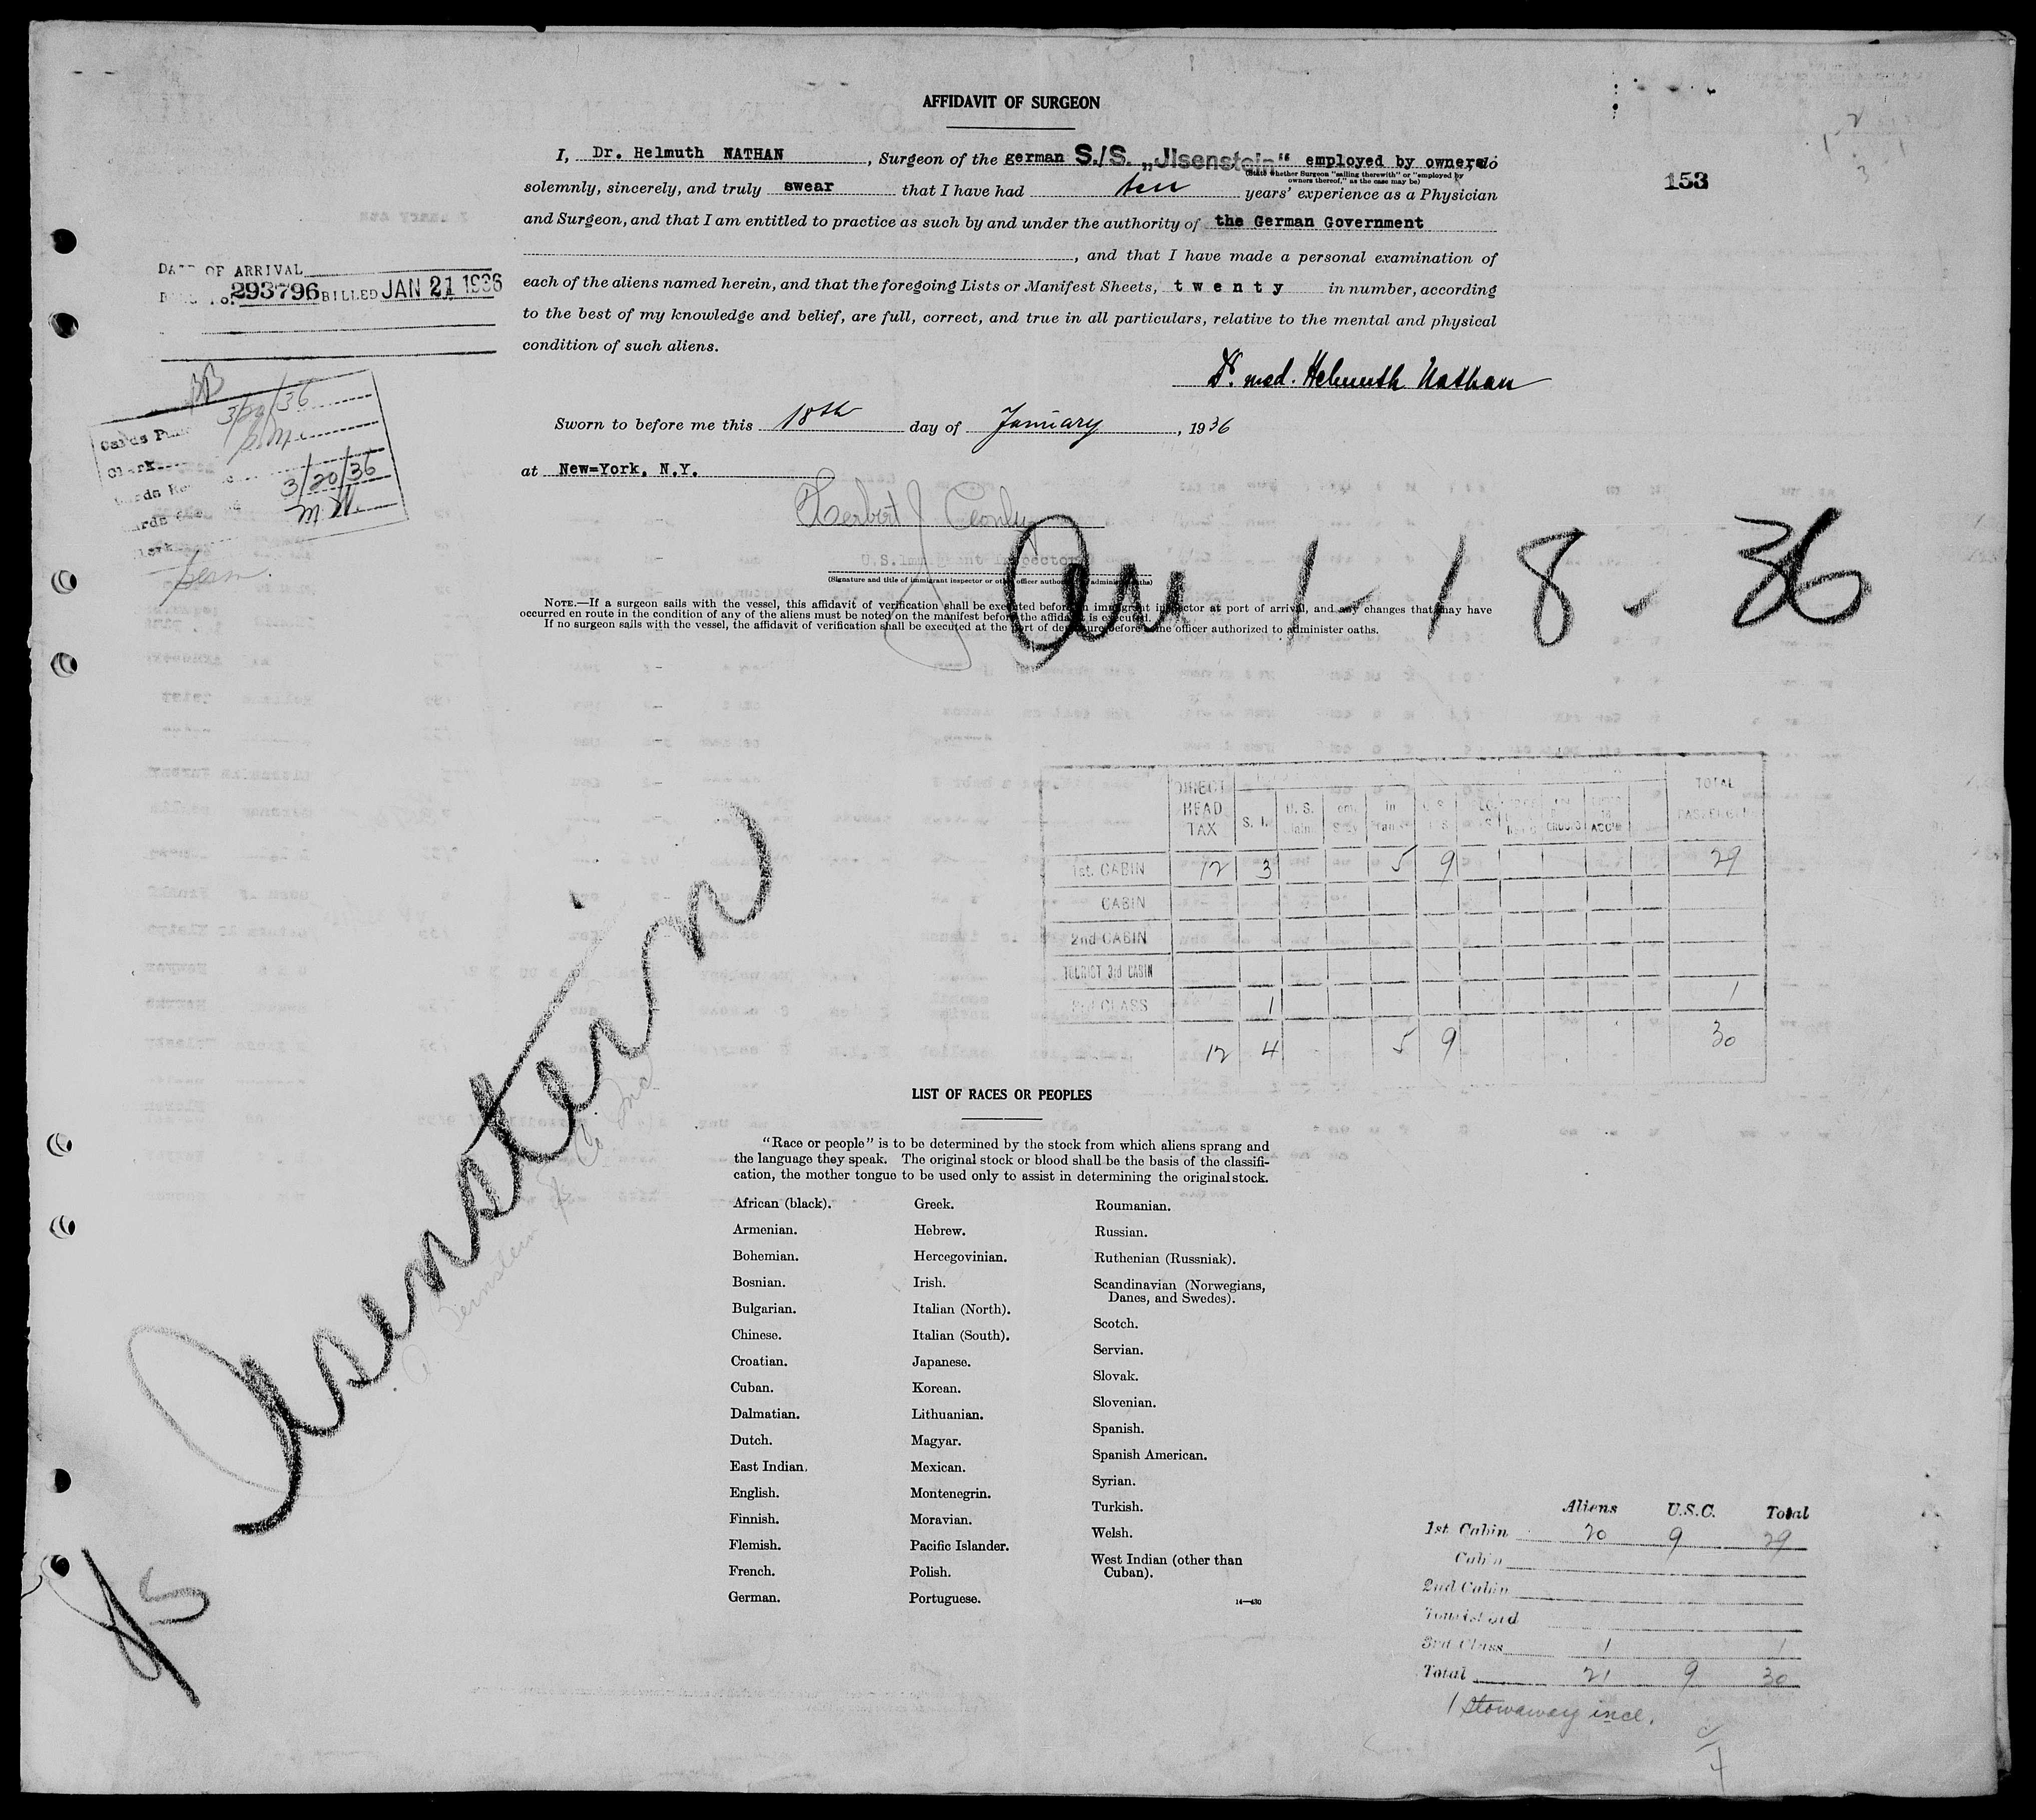 AFFIDAVIT OF SURGEON
153
I, Dr. Helmuth NATHAN, Surgeon of the german S./S. „Jlsenstein" employed by owners, do
(State whether Surgeon "sailing therewith" or "employed by
owners thereof," as the case may be)
solemnly, sincerely, and truly swear that I have had ten years' experience as a Physician
and Surgeon, and that I am entitled to practice as such by and under the authority of the German Government
, and that I have made a personal examination of
each of the aliens named herein, and that the foregoing Lists or Manifest Sheets, twenty in number, according
to the best of my knowledge and belief, are full, correct, and true in all particulars, relative to the mental and physical
condition of such aliens.
Dr. med. Helmuth Nathan
Sworn to before me this 18th day of January, 1936
at New=York, N.Y.
Herbert J
U.S. Immigrant Inspector
(Signature and title of immigrant inspector or other officer authorized to administer oaths)
NOTE.—If a surgeon sails with the vessel, this affidavit of verification shall be executed before an immigrant inspector at port of arrival, and any changes that may have
occurred en route in the condition of any of the aliens must be noted on the manifest before the affidavit is executed.
If no surgeon sails with the vessel, the affidavit of verification shall be executed at the port of departure before some officer authorized to administer oaths.
DATE OF ARRIVAL
293796 BILLED JAN 21 1936
Cards 3/20/36
Clerk
3/20/36
Clerk
Arr 1-18-36
DIRECT HEAD TAX S. I. U. S. TOTAL
1st. CABIN 12 3 5 9 29
CABIN
2nd CABIN
TOURIST 3rd CABIN
3rd CLASS 1 1
12 4 5 9 30
Ilsenstein
Bernstein
Co Inc
LIST OF RACES OR PEOPLES
"Race or people" is to be determined by the stock from which aliens sprang and
the language they speak. The original stock or blood shall be the basis of the classifi-
cation, the mother tongue to be used only to assist in determining the original stock.
African (black).
Armenian.
Bohemian.
Bosnian.
Bulgarian.
Chinese.
Croatian.
Cuban.
Dalmatian.
Dutch.
East Indian.
English.
Finnish.
Flemish.
French.
German.
Greek.
Hebrew.
Hercegovinian.
Irish.
Italian (North).
Italian (South).
Japanese.
Korean.
Lithuanian.
Magyar.
Mexican.
Montenegrin.
Moravian.
Pacific Islander.
Polish.
Portuguese.
Roumanian.
Russian.
Ruthenian (Russniak).
Scandinavian (Norwegians,
Danes, and Swedes).
Scotch.
Servian.
Slovak.
Slovenian.
Spanish.
Spanish American.
Syrian.
Turkish.
Welsh.
West Indian (other than
Cuban).
14—430
Aliens U.S.C. Total
1st. Cabin 20 9 29
Cabin
2nd Cabin
Tourist 3rd
3rd Class 1 1
Total 21 9 30
1 Stowaway incl.